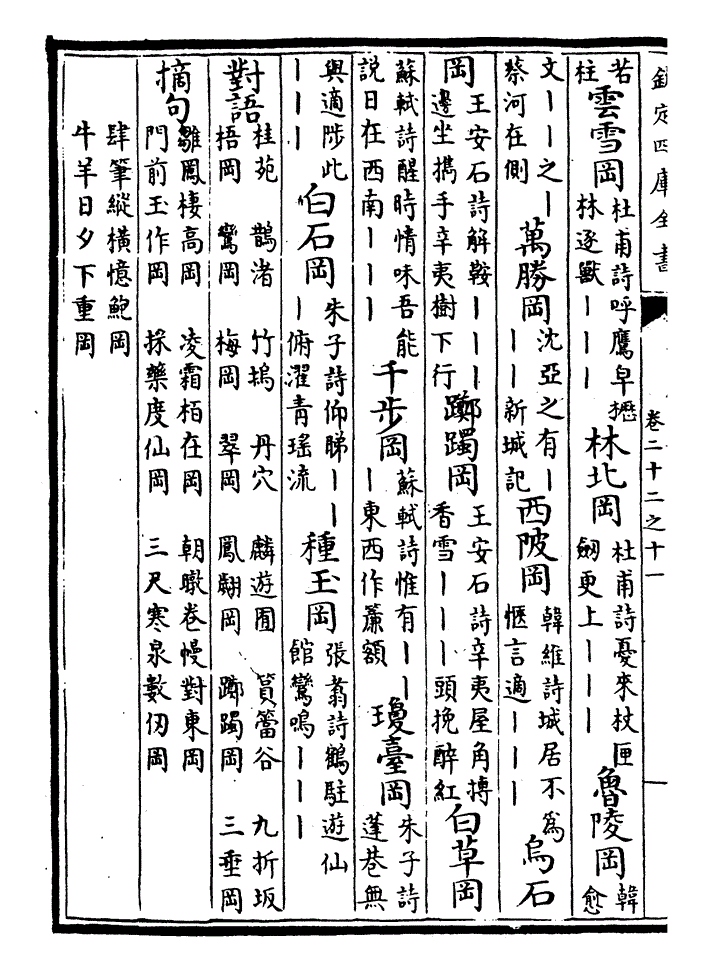 欽定四庫全書 卷二十二之十一
若
柱
雲雪岡
杜甫詩呼鷹皁櫪
林逐獸丨丨丨
林北岡
杜甫詩憂來杖匣
劒更上丨丨丨
魯陵岡
韓
愈
文丨丨之丨
蔡河在側
萬勝岡
沈亞之有丨
丨丨新城記
西陂岡
韓維詩城居不為
愜言適丨丨丨
烏石
岡
王安石詩解鞍丨丨丨
邊坐攜手辛夷樹下行
躑躅岡
王安石詩辛夷屋角摶
香雪丨丨丨頭挽醉紅
白草岡
蘇軾詩醒時情味吾能
說日在西南丨丨丨
千步岡
蘇軾詩惟有丨丨
丨東西作簾額
瓊臺岡
朱子詩
蓬巷無
與適陟此
丨丨丨
白石岡
朱子詩仰睇丨丨
丨俯濯青瑤流
種玉岡
張翥詩鶴駐遊仙
館鸞鳴丨丨丨
對語
桂苑 鵲渚 竹塢 丹穴 麟遊囿 篔簹谷 九折坂
梧岡 鸞岡 梅岡 翠岡 鳳翽岡 躑躅岡 三垂岡
摘句
雛鳳棲高岡 凌霜栢在岡 朝暾卷幔對東岡
門前玉作岡 採藥度仙岡 三尺寒泉數仞岡
肆筆縱橫憶鮑岡
牛羊日夕下重岡